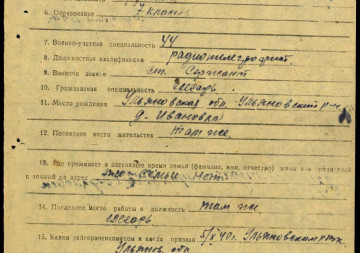 6. Образование 7 классов
7. Военно-учетная специальность 44
8. Должностная квалификация радиотелеграфист
9. Военное звание ст. сержант
10. Гражданская специальность слесарь
11. Место рождения Ульяновская обл. Ульяновский р-н
д. Ивановка
12. Последнее место жительства там же
13. Где проживает в настоящее время семья (фамилия, имя, отчество) жены или родителей
и точный их адрес семьи нет
14. Последнее место работы и должность там же
слесарь
15. Каким райгорвоенкоматом и когда призван 5/X 40 г. Ульяновским
Ульянов. обл.